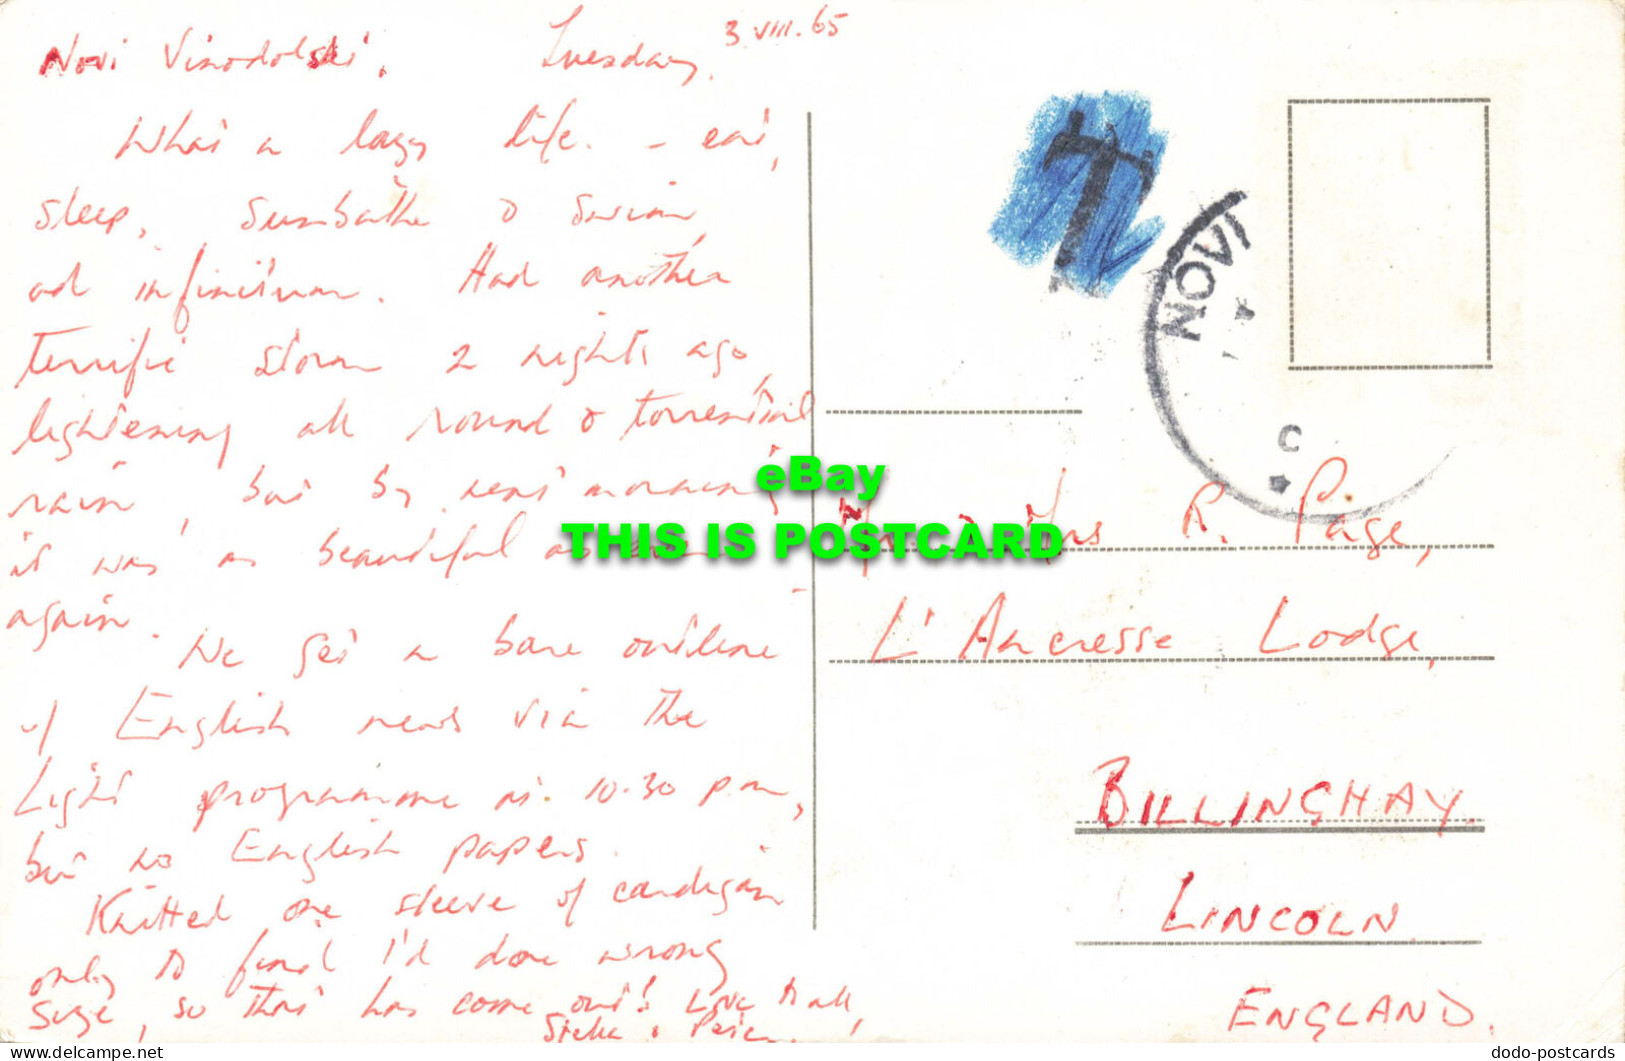 Novi Vinodolski. Tuesday. 3.VIII.65
What a lazy life. - eat,
sleep, sunbathe & swim,
ad infinitum. Had another
terrific storm 2 nights ago,
lightening all round & torrential
rain, but by next morning
it was as beautiful as ever
again.
We get a bare outline
of English news via the
Light programme at 10.30 p.m,
but no English papers.
Knitted one sleeve of cardigan
only to find I'd done wrong
size, so that has come out! Love to all,
Stella & Peter.
T
NOVI
C
eBay
THIS IS POSTCARD
Mr. & Mrs R. Page,
L'Ancresse Lodge,
BILLINGHAY.
LINCOLN.
ENGLAND.
dodo-postcards